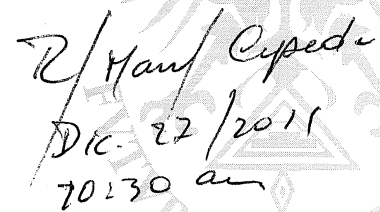 R/ Mary Cepeda
Dic. 22/2011
10:30 am